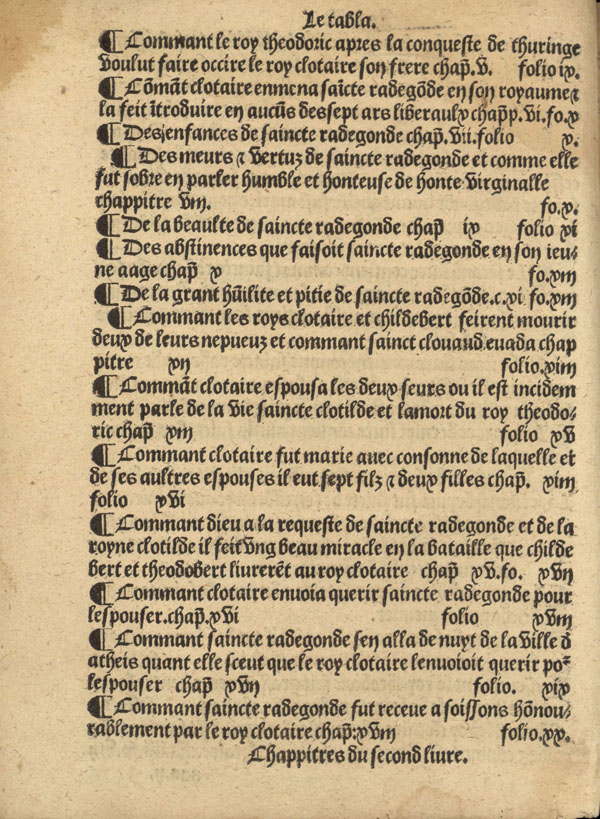 Le tabla.
¶ Commant le roy theodoric apres la conqueste de thuringe
voulut faire occire le roy clotaire son frere chap̃. v. folio ix.
¶ Cõmãt clotaire enmena saĩcte radegõde en son royaume ⁊
la feit ĩtroduire en aucũs des sept ars liberaulx chapp̃. vi. fo. x
¶ Des enfances de saincte radegonde chap̃. vii. folio x.
¶ Des meurs ⁊ vertuz de saincte radegonde et comme elle
fut sobre en parler humble et honteuse de honte virginalle
chappitre viii. fo. x.
¶ De la beaulte de saincte radegonde chap̃ ix folio xi
¶ Des abstinences que faisoit saincte radegonde en son ieu⸗
ne aage chap̃ x fo. xiii
¶ De la grant hũilite et pitie de saincte radegõde. c. xi. fo. xiii
¶ Commant les roys clotaire et childebert feirent mourir
deux de leurs nepueuz et commant sainct clouaud euada chap
pitre xii folio. xiiii
¶ Commãt clotaire espousa les deux seurs ou il est incidem
ment parle de la vie saincte clotilde et lamort du roy theodo⸗
ric chap̃ xiii folio xv
¶ Commant clotaire fut marie avec consonne de laquelle et
de ses aultres espouses il eut sept filz ⁊ deux filles chap̃. xiiii
folio xvi
¶ Commant dieu a la requeste de saincte radegonde et de la
royne clotilde il feit vng beau miracle en la bataille que childe
bert et theodobert liurerẽt au roy clotaire chap̃ xv. fo. xvii
¶ Commant clotaire enuoia querir saincte radegonde pour
lespouser. chap̃. xvi folio xviii
¶ Commant saincte radegonde sen alla de nuyt de la ville d̃
atheis quant elle sceut que le roy clotaire lenuoioit querir poꝛ
lespouser chap̃ xvii folio. xix
¶ Commant saincte radegonde fut receue a soissons hõnou⸗
rablement par le roy clotaire chap̃: xviii folio. xx.
Chappitres du second liure.